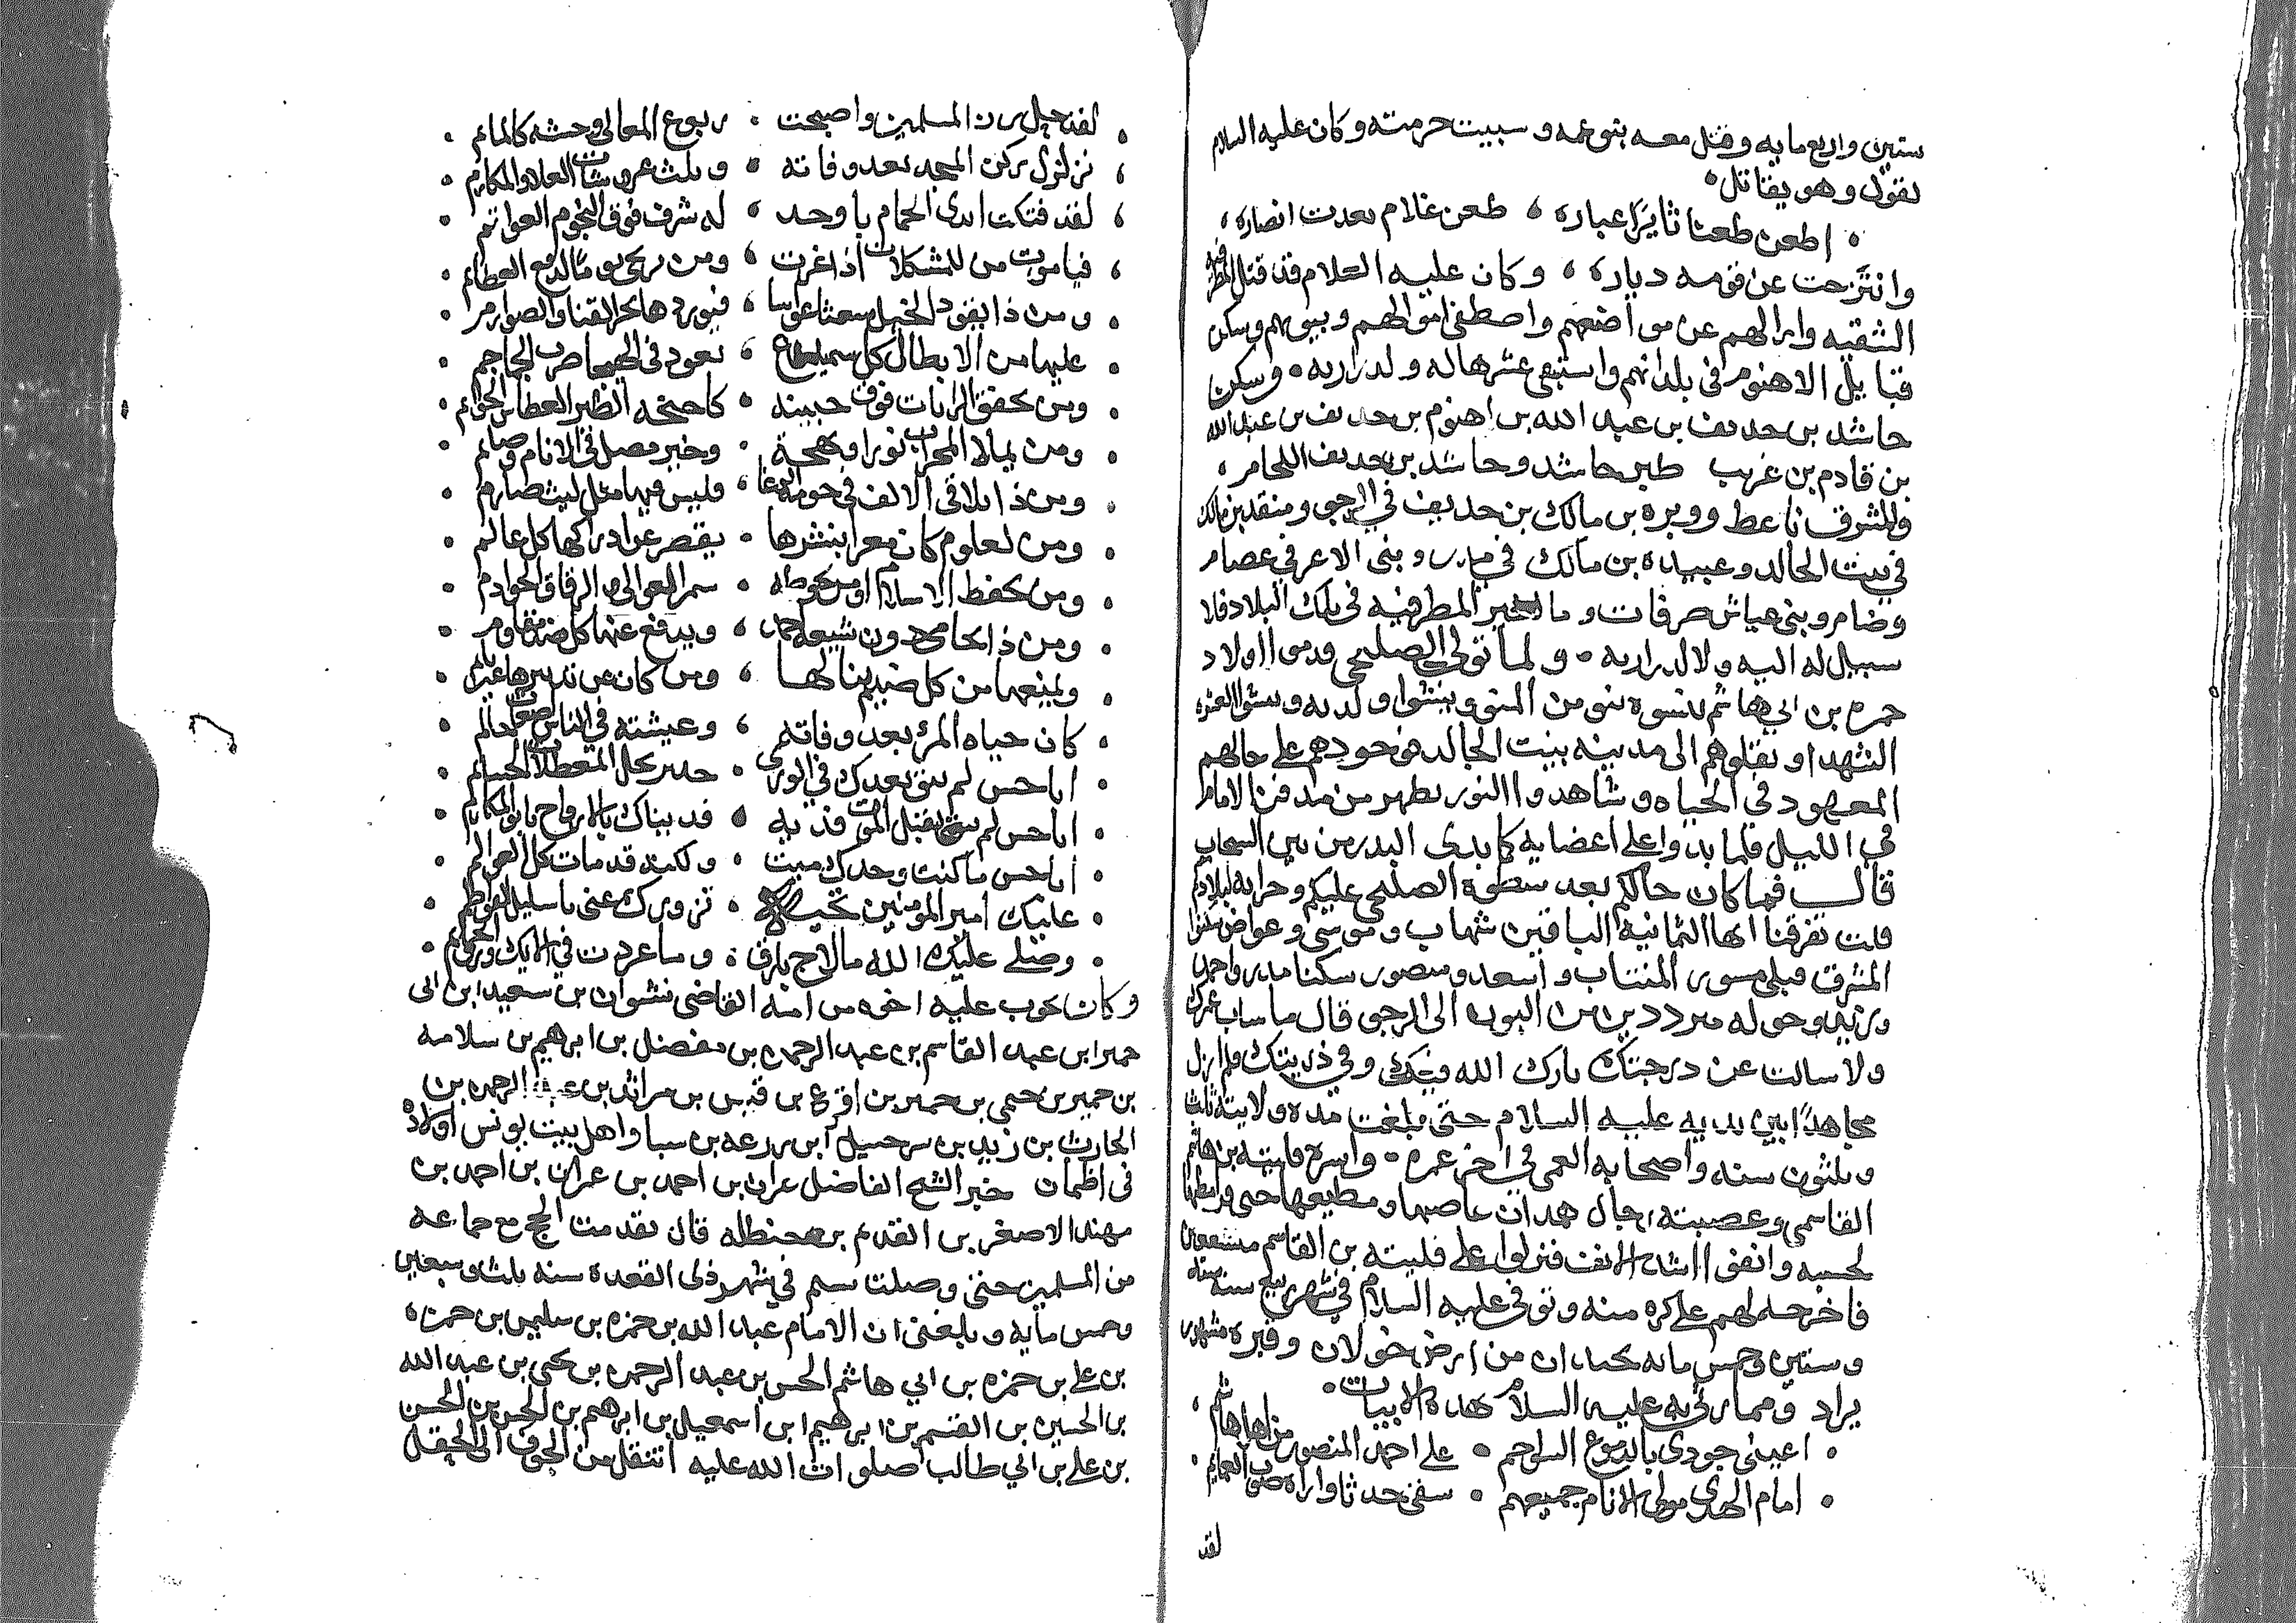 ستين واربع مايه وقتل معه بنو عمه وسبيت حرمته وكان عليه السلام
يقول وهو يقاتل
اطعن طعنا ثايرا غباره طعن غلام بعدت انصاره
وانتزحت عن قومه دياره وكان عليه السلام قد قتل المطرفيه
الشقيه وازالهم عن مواضعهم واصطفى اموالهم وبيوتهم وسكن
قبايل الاهنوم في بلدانهم واستبقى عشرها له ولذراريه وسكن
حاشد بن حديف بن عبد الله بن اهنوم بن حديف بن عبد الله
بن قادم بن غريب حاشد وحاشد بن حديف اللحامر
والمشرف ناعط ووبره بن مالك بن حديف في الرجو ومنقذ بن مالك
في بيت الجالد وعبيده بن مالك في مدر وبني الاعر في عصام
وضامر وبني عياش صرفات وما المطرفيه في تلك البلاد فلا
سبيل له اليه ولا لذراريه ولما تولى الصليحي اولاد
حمزه بن ابي هاشم
الشهدا ونقلوهم الى مدينه بيت الجالد فوجودهم على حالهم
المعهود في الحياه وشاهدوا النور يظهر من مدفن الامام
في الليل فلما بدوا على اعضايه كما بدى البدر من بين السحاب
قال فما كان حالكم بعد سطوة الصليحي عليكم وحرابه لبلادكم
قلت تفرقنا ايها الثمانيه الباقين شهاب وموسى وعواض سكنوا
المشرق قبلي مسور المنتاب واسعد ومنصور سكنا مدر واحمد
وزيد وحوله مرددين من البون الى الرجو قال ما ساب عمرك
ولا سالت عن درجتك بارك الله فيك وفي ذريتك فلم ازل
مجاهدا بين يديه عليه السلام حتى بلغت مدة ولايته ثلث
وثلثون سنه واصحابه العمى في اخر عمره واسره فليته بن هاشم
القاسمي وعصبته رجال همدان عاصيها ومطيعها
لحسبه وانفق فنزلوا على فليته بن القاسم
فاخرجه لهم على كره منه وتوفي عليه السلام في شهر ربيع سنه سته
وستين وخمس مايه بحيدان من ارض خولان وقبره مشهور
يزار ومما رثي به عليه السلام هذه الابيات
اعيني جودي بالدموع السواجم على احمد المنصور من اهل هاشم
امام الهدى مولى الانام جميعهم سقى جدثا واراه صوب الغمايم
لقد
لقد جل رزن المسلمين واصبحت ربوع المعالي وحشه كالماتم
تزلزل ركن المجد بعد وفاته وثلث عروشات العلا والمكارم
لقد فتكت ايدي الحمام باوحد له شرف فوق النجوم العواتم
فيا موت من للمشكلات اذا غرت ومن يرتجى يوما لدفع العظايم
ومن ذا يقود الخيل شعثا عوابسا فيوردها بحر القنا والصوارم
عليها من الابطال كل سميدع تعود في الهيجا ضرب الجماجم
ومن تخفق الرايات فوق جبينه كاجنحه الطير العطاش الحوايم
ومن يملا المحراب نورا وبهجة وخير مصل في الانام وصايم
ومن ذا يلاقي الالف في حومة الوغا فليس فيها مثل ليث صارم
ومن لعلوم كان مغرا بنشرها يقصر عن ادراكها كل عالم
ومن يحفظ الاسلام او من يحوطه بسمر العوالي والرقاق الخوادم
ومن ذا يحامي دون شيعه احمد ويدفع عنها كل ضد مقاوم
ويمنعها من كل ضيم ينالها ومن كان عن تدبيرها غير نايم
كان حياه المرء بعد وفاته وعيشته في الناس اضغاث حالم
ابا حسن لم يبق بعدك في الورى
ابا حسن لم يقبل الموت فديه فديناك بالارواح يابو المكارم
ابا حسن ما كنت وحدك ميت ولكنه قد مات كل العوالم
عليك امير المومنين تحيه تزورك عني يا سليل الفواطم
وصلى عليك الله ما لاح بارق وما غردت في الايك ورق الحمايم
وكان يحرب عليه اخوه من امه القاضي نشوان بن سعيد ابن ابي
حمير ابن عبد القاسم بن عبد الرحمن بن مفضل بن ابرهيم بن سلامه
بن حمير بن حيي بن حمير بن اقرع بن قيس بن مراثد بن عبد الرحمن بن
الحارث بن زيد بن سرحبيل ابن زرعه بن سبا واهل بيت بونس اولاد
في اظمان خبر الشيخ الفاضل عران بن احمد بن عمران بن احمد بن
مهند الاصغر بن القديم بن حنظله قال تقدمت الحج مع جماعه
من المسلمين حتى وصلت في شهر ذي القعدة سنه ثلث وسبعين
وخمس مايه وبلغني ان الامام عبد الله بن حمزه بن سليمن بن حمزه
بن علي بن حمزه بن ابي هاشم الحسن بن عبد الرحمن بن يحيى بن عبد الله
بن الحسين بن القسم بن ابرهيم ابن اسمعيل بن ابرهيم بن الحسن بن الحسن
بن علي بن ابي طالب صلوات الله عليه انتقل من الجوف الى الحقل